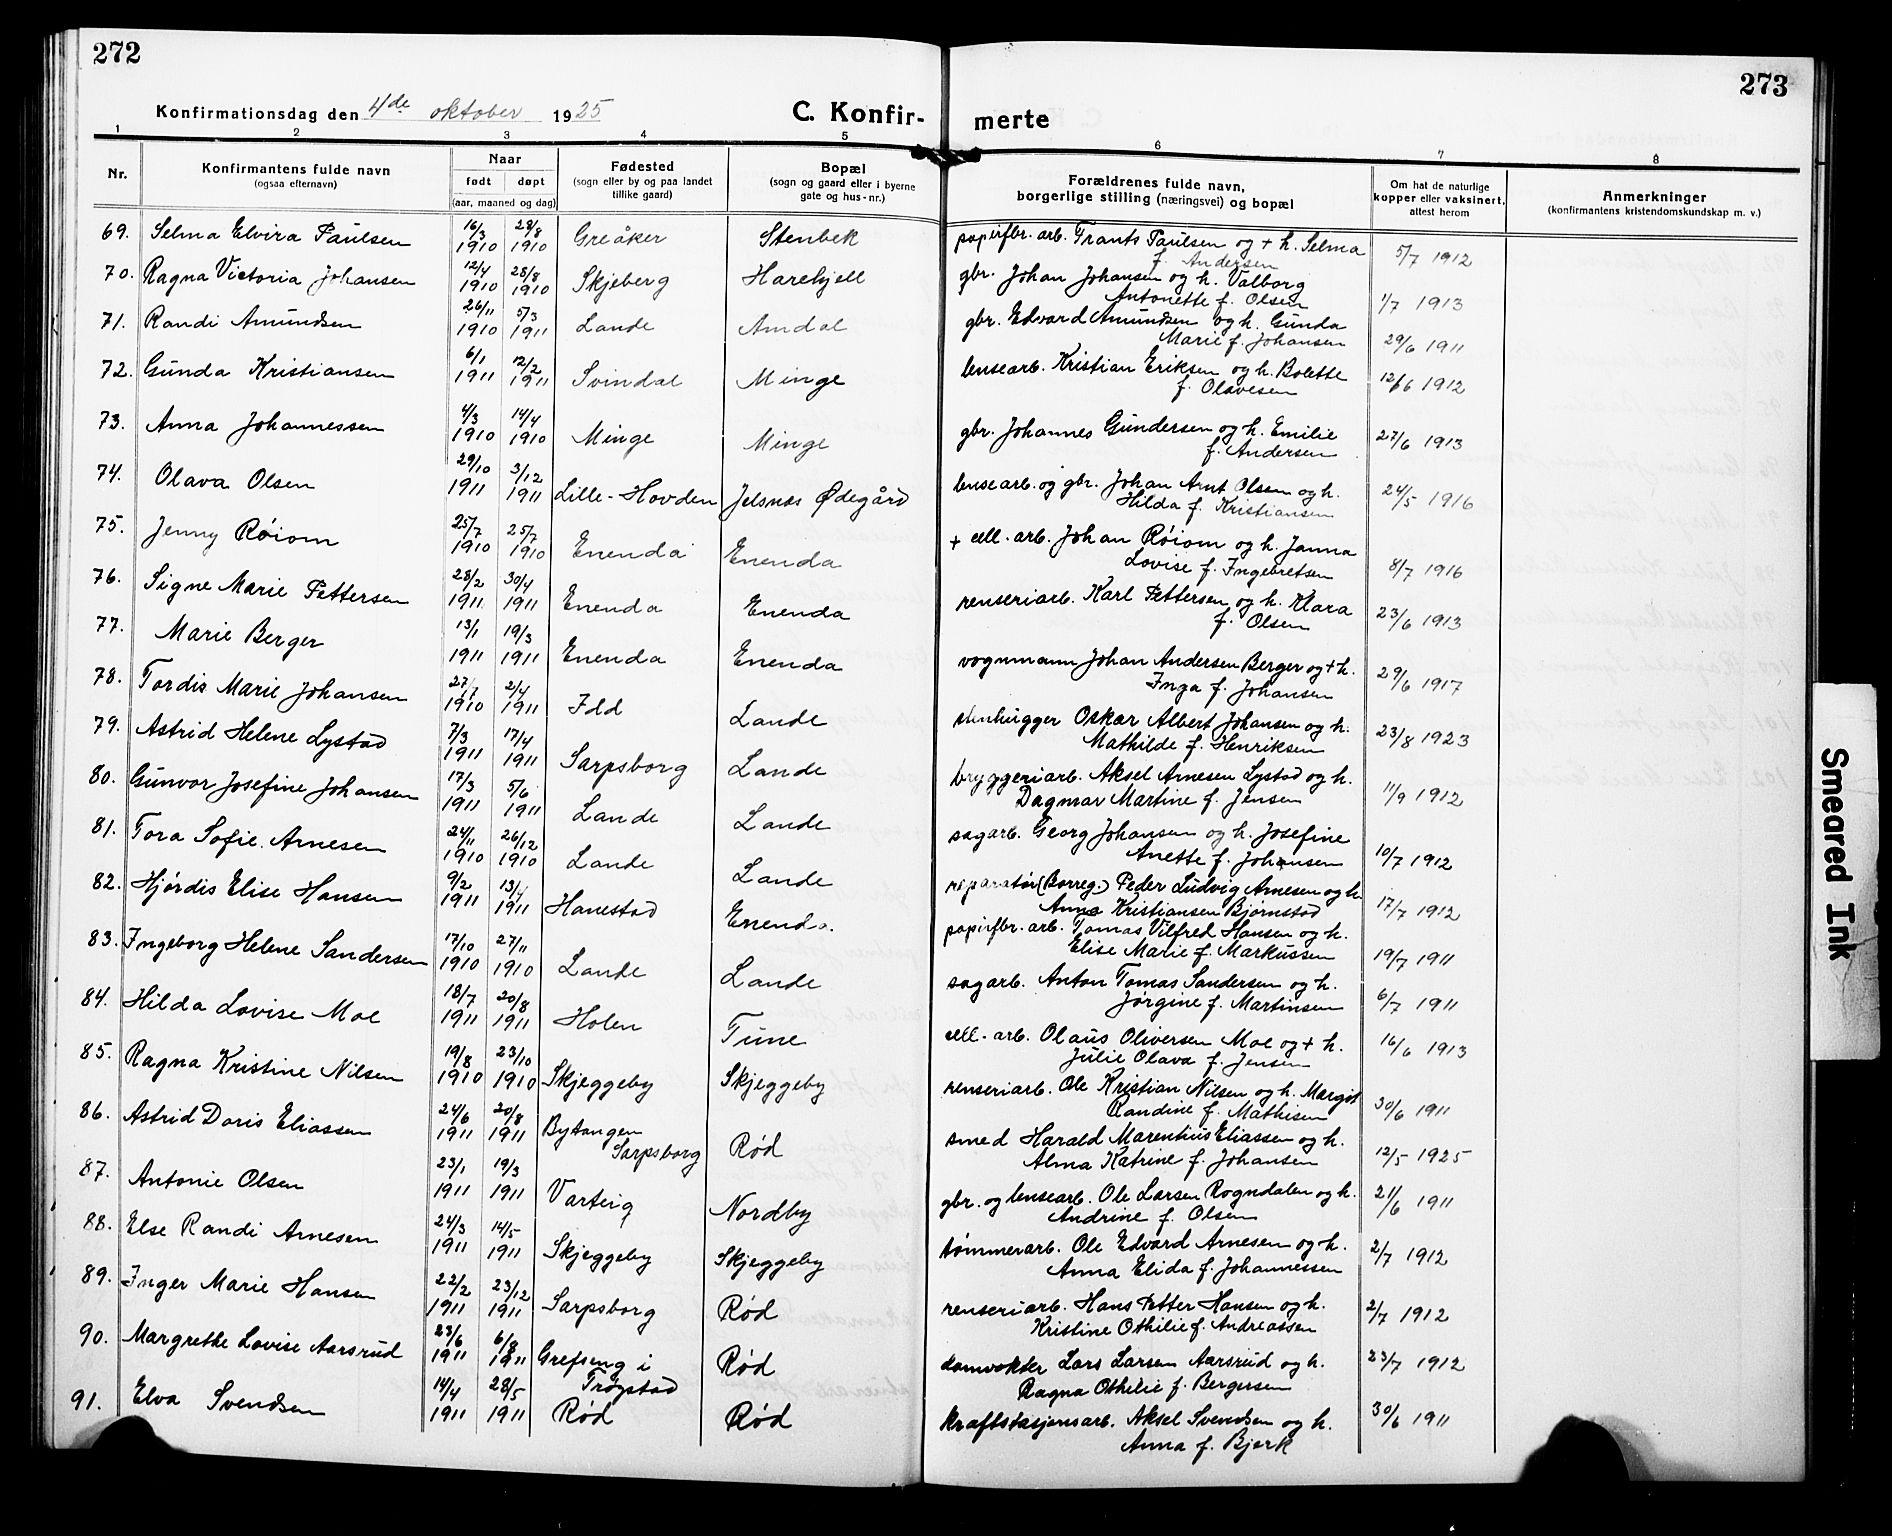 272
273
Konfirmationsdag den 4de oktober 1925
C. Konfir- merte
1 2 3 4 5 6 7 8
Nr.
Konfirmantens fulde navn
(ogsaa efternavn)
Naar
født døpt
(aar, maaned og dag)
Fødested
(sogn eller by og paa landet
tillike gaard)
Bopæl
(sogn og gaard eller i byerne
gate og hus-nr.)
Forældrenes fulde navn,
borgerlige stilling (næringsvei) og bopæl
Om hat de naturlige
kopper eller vaksinert,
attest herom
Anmerkninger
(konfirmantens kristendomskundskap m. v.)
69. Selma Elvira Paulsen 16/3 1910 28/8 1910 Greåker Stenbek papirfbr. arb. Frants Paulsen og + h. Selma
f. Andersen 5/7 1912
70. Ragna Victoria Johansen 12/4 1910 28/8 1910 Skjeberg Harehjell gbr. Johan Johansen og h. Valborg
Antonette f. Olsen 1/7 1913
71. Randi Amundsen 26/11 1910 5/3 1911 Lande Amdal gbr. Edvard Amundsen og h. Gunda
Marie f. Johansen 29/6 1911
72. Gunda Kristiansen 6/1 1911 12/2 1911 Svindal Minge lensearb. Kristian Eriksen og h. Bolette
f. Olavesen 12/6 1912
73. Anna Johannessen 4/3 1910 14/4 1910 Minge Minge gbr. Johannes Gundersen og h. Emilie
f. Andersen 27/6 1913
74. Olava Olsen 29/10 1911 3/12 1911 Lille-Hovden Jelsnes Ødegård lensearb. og gbr. Johan Arnt Olsen og h.
Hilda f. Kristiansen 24/5 1916
75. Jenny Røiom 25/7 1910 25/7 1910 Enenda Enenda + cell. arb. Johan Røiom og h. Janna
Lovise f. Ingebretsen 8/7 1916
76. Signe Marie Pettersen 28/2 1911 30/4 1911 Enenda Enenda renseriarb. Karl Pettersen og h. Klara
f. Olsen 23/6 1913
77. Marie Berger 13/1 1911 19/3 1911 Enenda Enenda vognmann Johan Andersen Berger og + h.
Inga f. Johansen 29/6 1917
78. Tordis Marie Johansen 27/7 1910 2/4 1911 Idd Lande stenhugger Oskar Albert Johansen og h.
Mathilde f. Henriksen 23/8 1923
79. Astrid Helene Lystad 7/3 1911 17/4 1911 Sarpsborg Lande bryggeriarb. Aksel Arnesen Lystad og h.
Dagmar Martine f. Jensen 11/9 1912
80. Gunvor Josefine Johansen 17/3 1911 5/6 1911 Lande Lande sagarb. Georg Johansen og h. Josefine
Anette f. Johansen 10/7 1912
81. Tora Sofie Arnesen 24/11 1910 26/12 1910 Lande Lande reparatør (Borreg.) Peder Ludvig Arnesen og h.
Anna Kristiansen Bjørnstad 17/7 1912
82. Hjørdis Elise Hansen 9/2 1911 13/4 1911 Hanestad Enenda. papirfbr. arb. Tomas Vilfred Hansen og h.
Elise Marie f. Markussen 19/7 1911
83. Ingeborg Helene Sandersen 17/10 1910 27/11 1910 Lande Lande sagarb. Anton Tomas Sandersen og h.
Jørgine f. Martinsen 6/7 1911
84. Hilda Lovise Moe 18/7 1911 20/8 1911 Holen Tune cell. arb. Olaus Oliversen Moe og + h.
Julie Olava f. Jensen 16/6 1913
85. Ragna Kristine Nilsen 19/8 1910 23/10 1910 Skjeggeby Skjeggeby renseriarb. Ole Kristian Nilsen og h. Margit
Randine f. Mathisen 30/6 1911
86. Astrid Doris Eliassen 24/6 1911 20/8 1911 Bytangen
Sarpsborg Rød smed Harald Marentius Eliassen og h.
Alma Katrine f. Johansen 12/5 1925
87. Antonie Olsen 23/1 1911 19/3 1911 Varteig Nordby gbr. og lensearb. Ole Larsen Rogndalen og h.
Andrine f. Olsen 21/6 1911
88. Else Randi Arnesen 24/3 1911 14/5 1911 Skjeggeby Skjeggeby tømmerarb. Ole Edvard Arnesen og h.
Anna Elida f. Johannessen 2/7 1912
89. Inger Marie Hansen 22/2 1911 23/12 1911 Sarpsborg Rød renseriarb. Hans Petter Hansen og h.
Kristine Othilie f. Andreassen 2/7 1912
90. Margrethe Lovise Aarsrud 23/6 1911 6/8 1911 Grefseng i
Trøgstad Rød damvokter Lars Larsen Aarsrud og h.
Ragna Othilie f. Bergersen 23/7 1912
91. Elva Svendsen 14/4 1911 28/5 1911 Rød Rød kraftstasjonsarb. Aksel Svendsen og h.
Anna f. Bjerk 30/6 1911
Smeared Ink